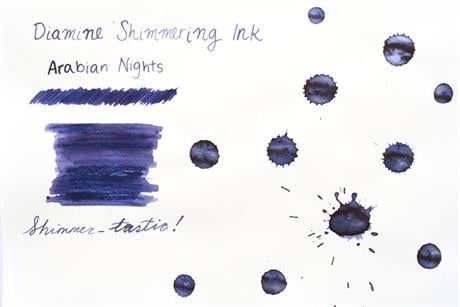 Diamine Shimmering Ink
Arabian Nights
Shimmer-tastic!